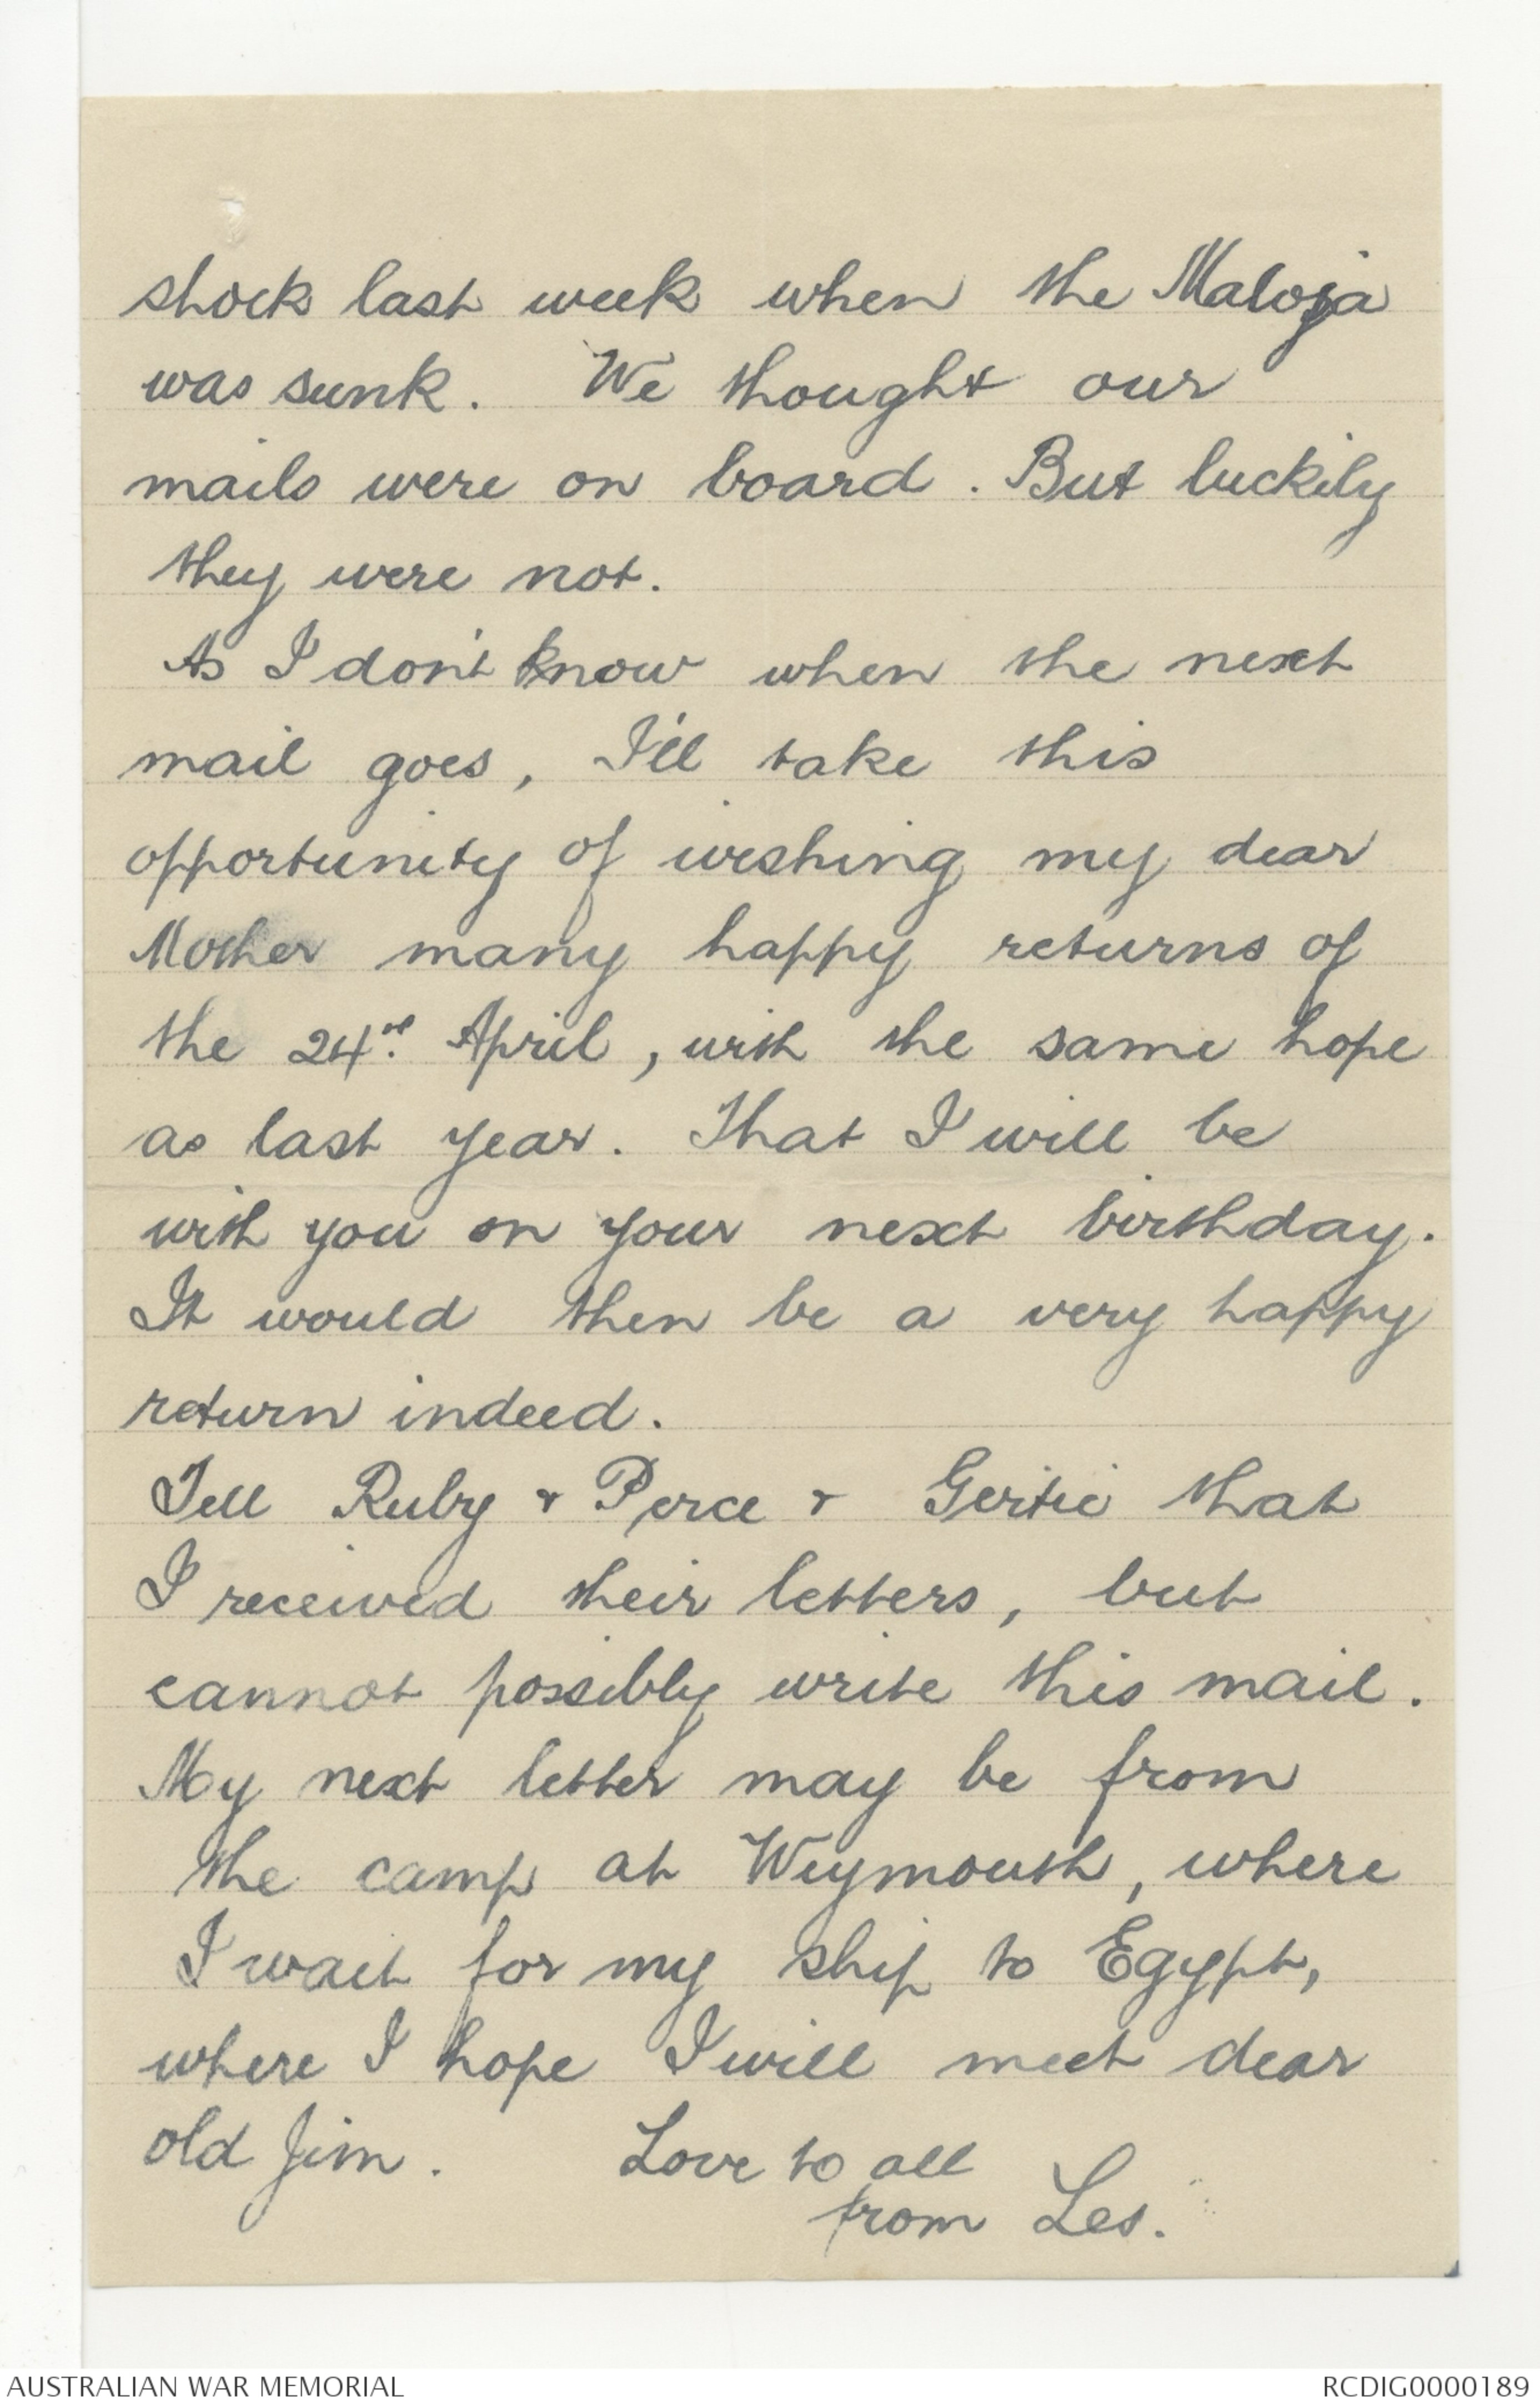 shock last week when the Maloja
was sunk. We thought our
mails were on board. But luckily
they were not.
As I don't know when the next
mail goes, I'll take this
opportunity of wishing my dear
Mother many happy returns of
the 24th April, with the same hope
as last year. That I will be
with you on your next birthday.
It would then be a very happy
return indeed.
Tell Ruby & Perce & Gertie that
I received their letters, but
cannot possibly write this mail.
My next letter may be from
the camp at Weymouth, where
I wait for my ship to Egypt,
where I hope I will meet dear
old Jim. Love to all
from Les.
AUSTRALIAN WAR MEMORIAL RCDIG0000189